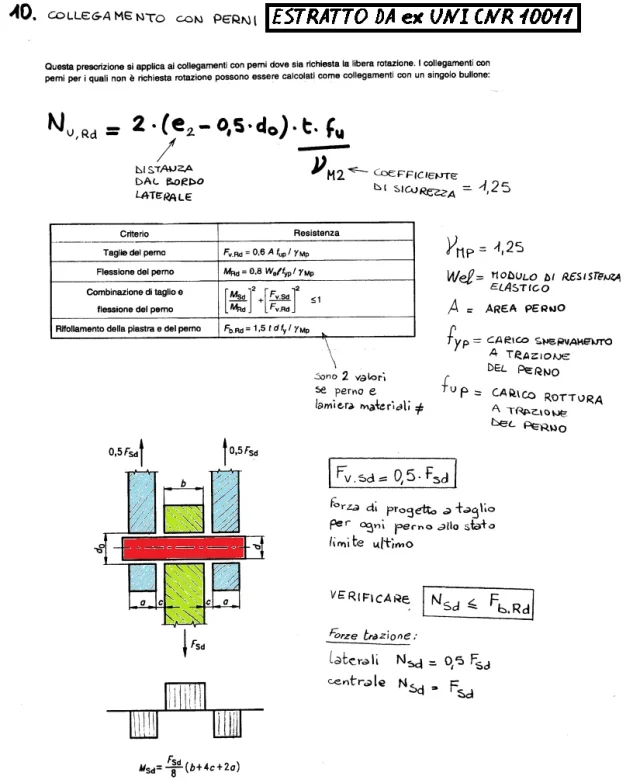 10. COLLEGAMENTO CON PERNI ESTRATTO DA ex UNI CNR 10011
Questa prescrizione si applica ai collegamenti con perni dove sia richiesta la libera rotazione. I collegamenti con
perni per i quali non è richiesta rotazione possono essere calcolati come collegamenti con un singolo bullone:
N u,Rd = 2·(e2 - 0,5·d0)·t·fu / γM2
DISTANZA
DAL BORDO
LATERALE
COEFFICIENTE
DI SICUREZZA = 1,25
Criterio Resistenza
Taglio del perno Fv.Rd = 0,6 A fup / γMp
Flessione del perno MRd = 0,8 Wel fyp / γMp
Combinazione di taglio e
flessione del perno
[MSd / MRd]² + [Fv.Sd / Fv.Rd]² ≤1
Rifollamento della piastra e del perno Fb.Rd = 1,5 t d fy / γMp
Sono 2 valori
se perno e
lamiera materiali ≠
γMp = 1,25
Wel = MODULO DI RESISTENZA
ELASTICO
A = AREA PERNO
fyp = CARICO SNERVAMENTO
A TRAZIONE
DEL PERNO
fup = CARICO ROTTURA
A TRAZIONE
DEL PERNO
0,5 FSd 0,5 FSd
b
d0 d
a c c a
FSd
MSd = FSd / 8 (b+4c+2a)
Fv.Sd = 0,5·FSd
forza di progetto a taglio
per ogni perno allo stato
limite ultimo
VERIFICARE NSd ≤ Fb.Rd
Forze trazione:
laterali NSd = 0,5 FSd
centrale NSd = FSd